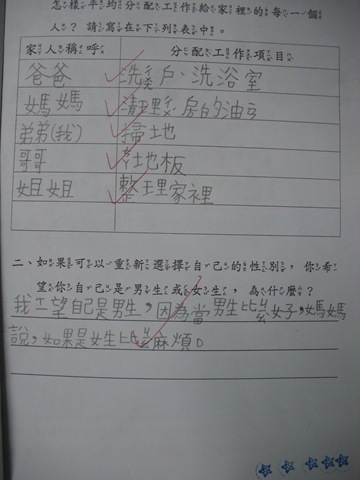 怎樣平均分配工作給家裡的每一個
人？請寫在下列表中。
家人稱呼 分配工作項目
爸爸 洗窗戶、洗浴室
媽媽 清理廚房的油ㄍ
弟弟(我) 掃地
哥哥 地板
姐姐 整理家裡
二、如果可以重新選擇自己的性別，你希
望你自己是男生或女生，為什麼？
我望自己是男生，因為當男生比ㄐㄠ好，媽媽
說，如果是女生比ㄐㄠ麻煩。